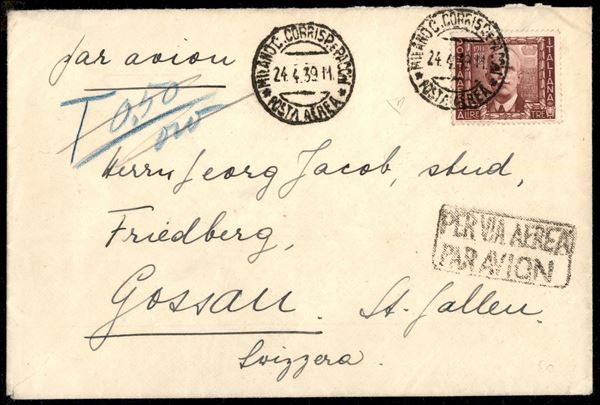 par avion
MILANO C. CORRISP. E PACCHI
24.4.39 11.
★ POSTA AEREA ★
MILANO C. CORRISP. E PACCHI
24.4.39 11.
★ POSTA AEREA ★
POSTE ITALIANE
LIRE TRE
T 0,50
Herrn Georg Jacob, stud,
Friedberg,
PER VIA AEREA
PAR AVION
Gossau. St. Gallen.
Svizzera.